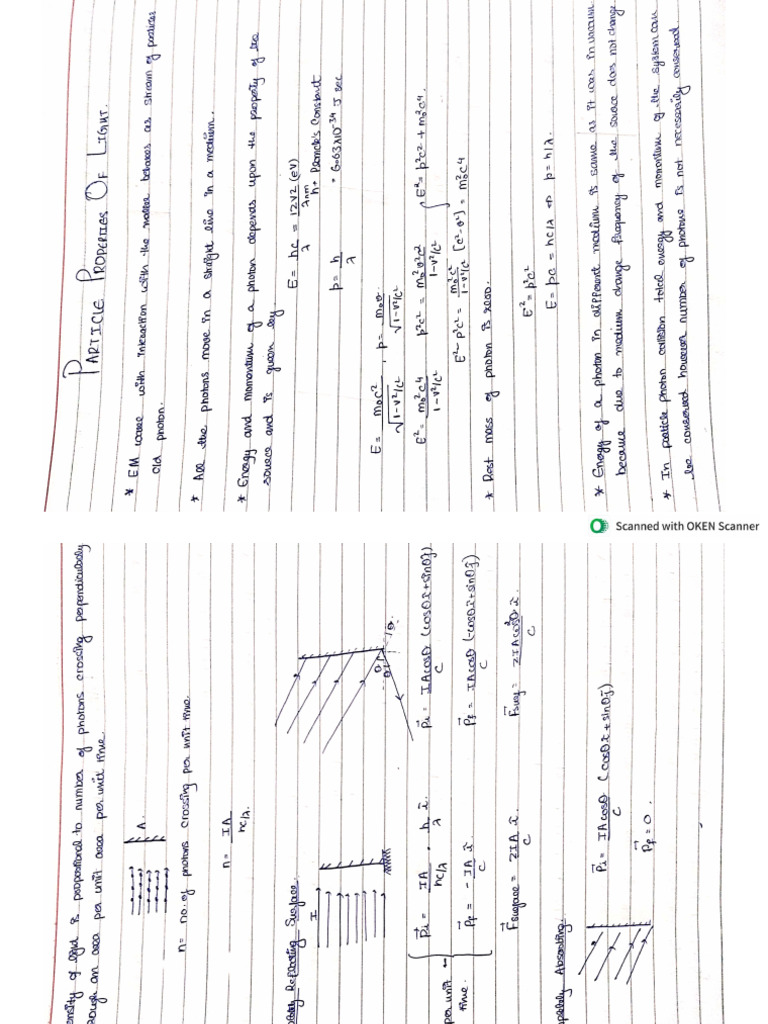 PARTICLE PROPERTIES OF LIGHT.
* EM wave with interaction with the matter behaves as stream of particles
old photon.
* All the photons move in a straight line in a medium.
* Energy and momentum of a photon depends upon the property of the
source and is given by
E = hc/λ = 12V2/λnm (eV)
h → Planck's Constant
p = h/λ = 6.63x10⁻³⁴ J sec
E = m₀c²/√1-v²/c² , p = m₀v/√1-v²/c²
E² = m₀²c⁴/1-v²/c² p²c² = m₀²v²c²/1-v²/c² E² = p²c² + m₀²c⁴.
E² - p²c² = m₀²c²/1-v²/c² [c²-v²] = m₀²c⁴
* Rest mass of photon is zero.
E² = p²c²
E = pc = hc/λ ⇒ p = h/λ.
* Energy of a photon in different medium is same as it was in vacuum
because due to medium change frequency of the source does not change
* In particle photon collision total energy and momentum of the system can
be conserved however number of photons is not necessarily conserved.
Scanned with OKEN Scanner
ensity of light is proportional to number of photons crossing perpendicularly
rough an area per unit area per unit time.
A.
n = no. of photons crossing per unit time.
n = IA/hc/λ.
Reflecting Surface.
I
θ θ
P⃗i = IA/hc/λ . h/λ î. P⃗i = IAcosθ/c (cosθî+sinθĵ)
per unit time.
P⃗f = -IA/c î P⃗f = IAcosθ/c (-cosθî+sinθĵ)
F⃗surface = 2IA/c î. F⃗sury = 2IAcos²θ/c î.
pletely Absorbing.
P⃗i = IAcosθ/c (cosθî+sinθĵ)
P⃗f = 0.